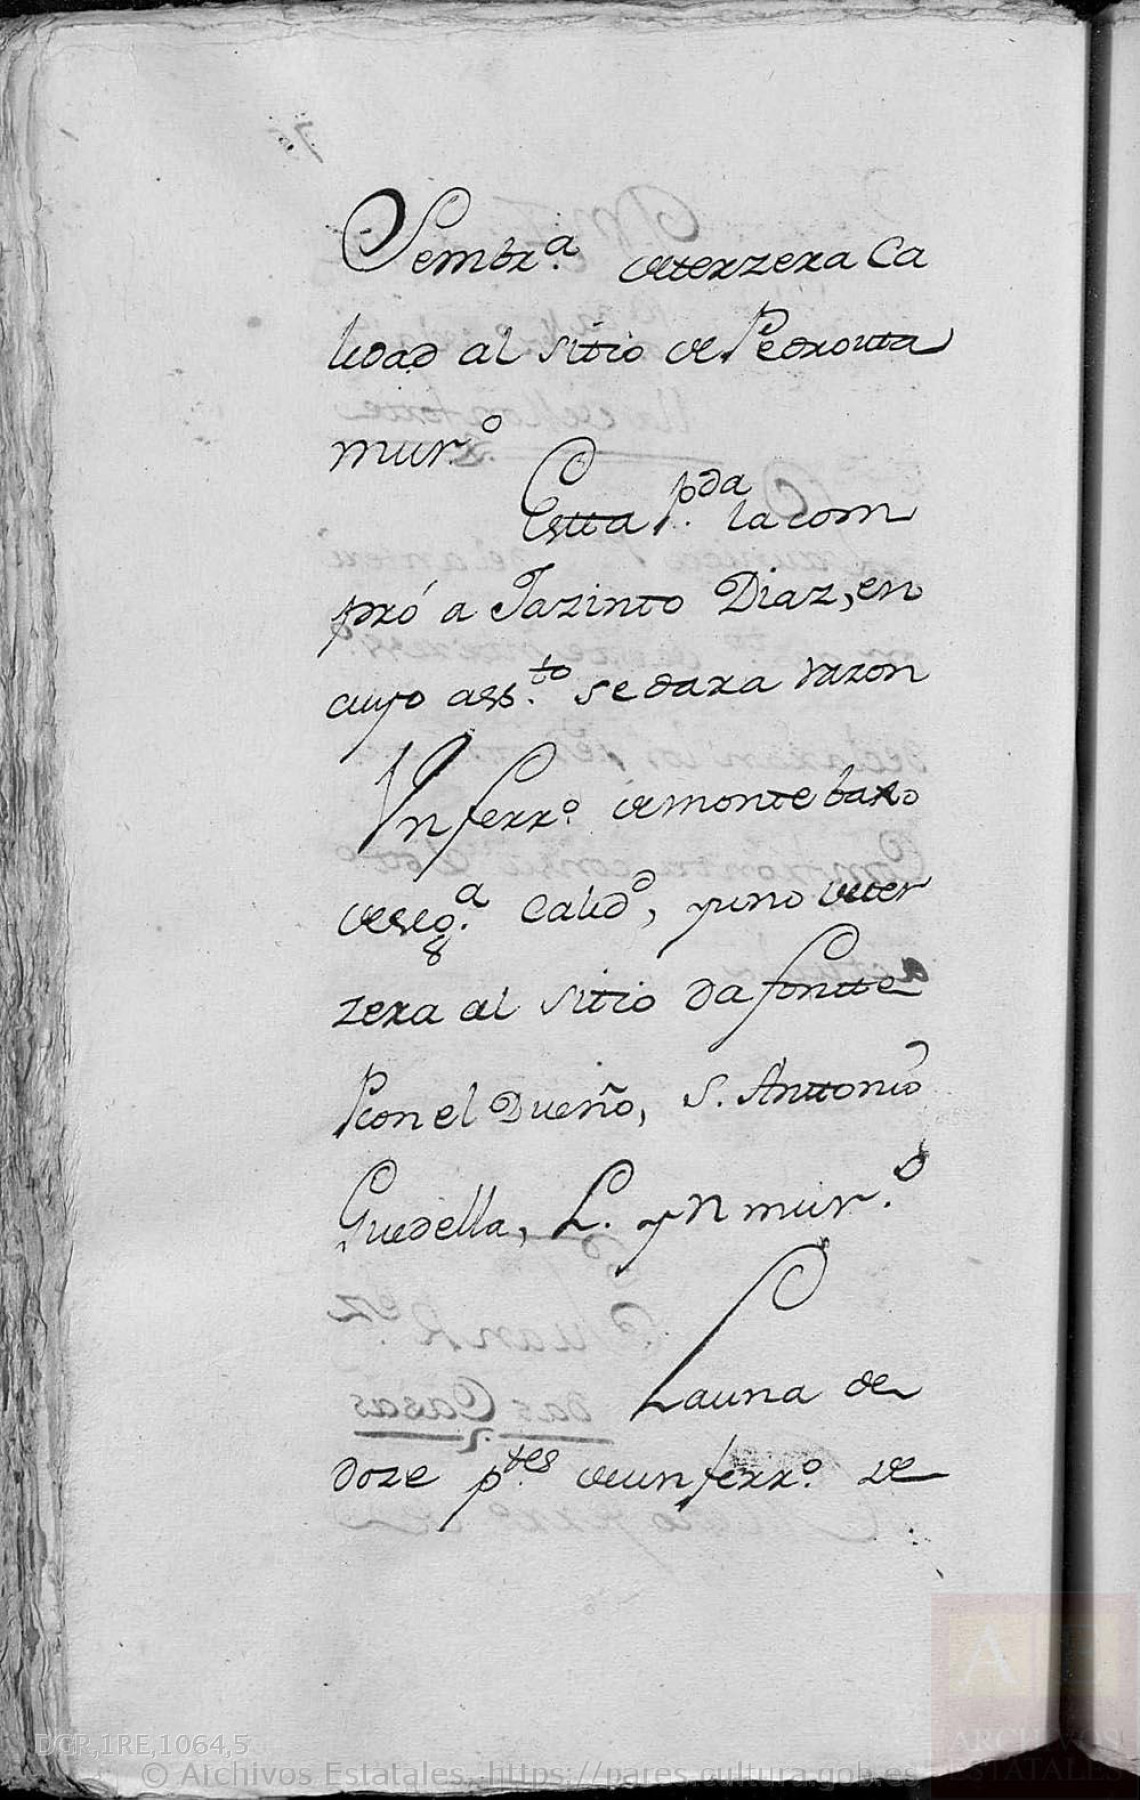 Sembr.ª deterzera Ca
lidad al sitio de Pedrouta
mur.º
Estta p.da la com
pró a Jazinto Diaz, en
cuyo ass.to se dara razon
Vn ferr.º de monte baxo
deseg.ª Calid.d, y uno deter
zera al sitio da fontte
Con el Dueño, S. Anttonio
Guedella, L. y N mur.º
La una de
doze p.tes de un ferr.º de
DGR,1RE,1064,5
© Archivos Estatales, https://pares.cultura.gob.es
ARCHIVOS
ESTATALES